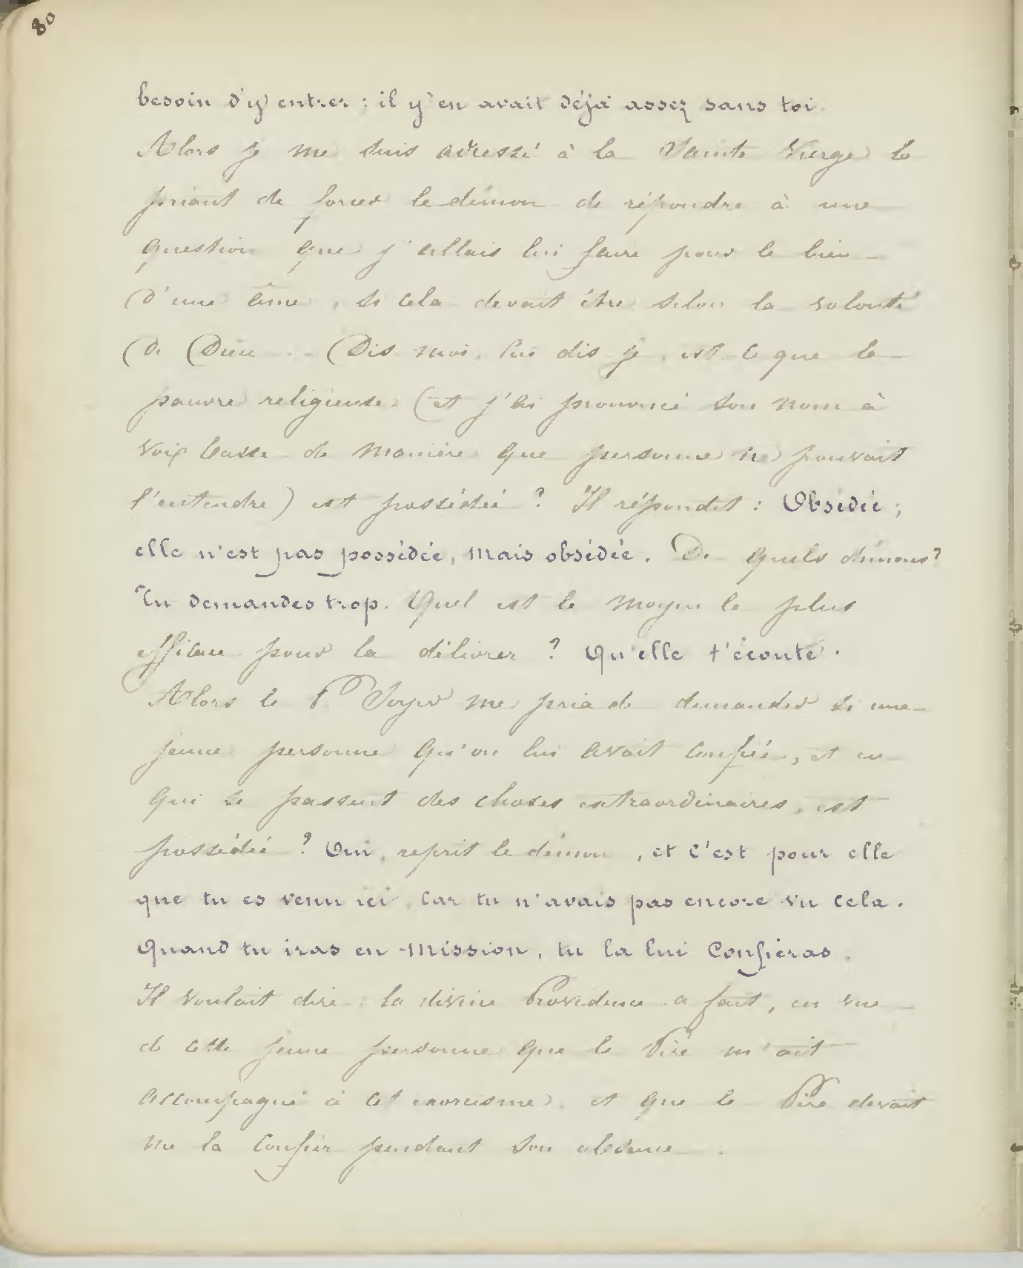 80
besoin d'y entrer ; il y en avait déjà assez sans toi.
Alors je me suis adressé à la Sainte Vierge la
priant de forcer le démon de répondre à une
question que j'allais lui faire pour le bien
d'une âme, si cela devait être selon la volonté
de Dieu. – Dis moi, lui dis je, est-ce que la
pauvre religieuse (et j'ai prononcé son nom à
voix basse de manière que personne ne pouvait
l'entendre) est possédée ? Il répondit : Obsédée ;
elle n'est pas possédée, mais obsédée. De quels démons ?
Tu demandes trop. Quel est le moyen le plus
efficace pour la délivrer ? Qu'elle t'écoute.
Alors le P. me pria de demander si une
jeune personne qu'on lui avait confiée, et en
qui se passent des choses extraordinaires, est
possédée ? Oui, reprit le démon, et c'est pour elle
que tu es venu ici, car tu n'avais pas encore vu cela.
Quand tu iras en mission, tu la lui confieras.
Il voulait dire : la divine Providence a fait, en vue
de cette jeune personne que le Père m'ait
accompagné à cet exorcisme, et que le Père devait
me la confier pendant son absence.